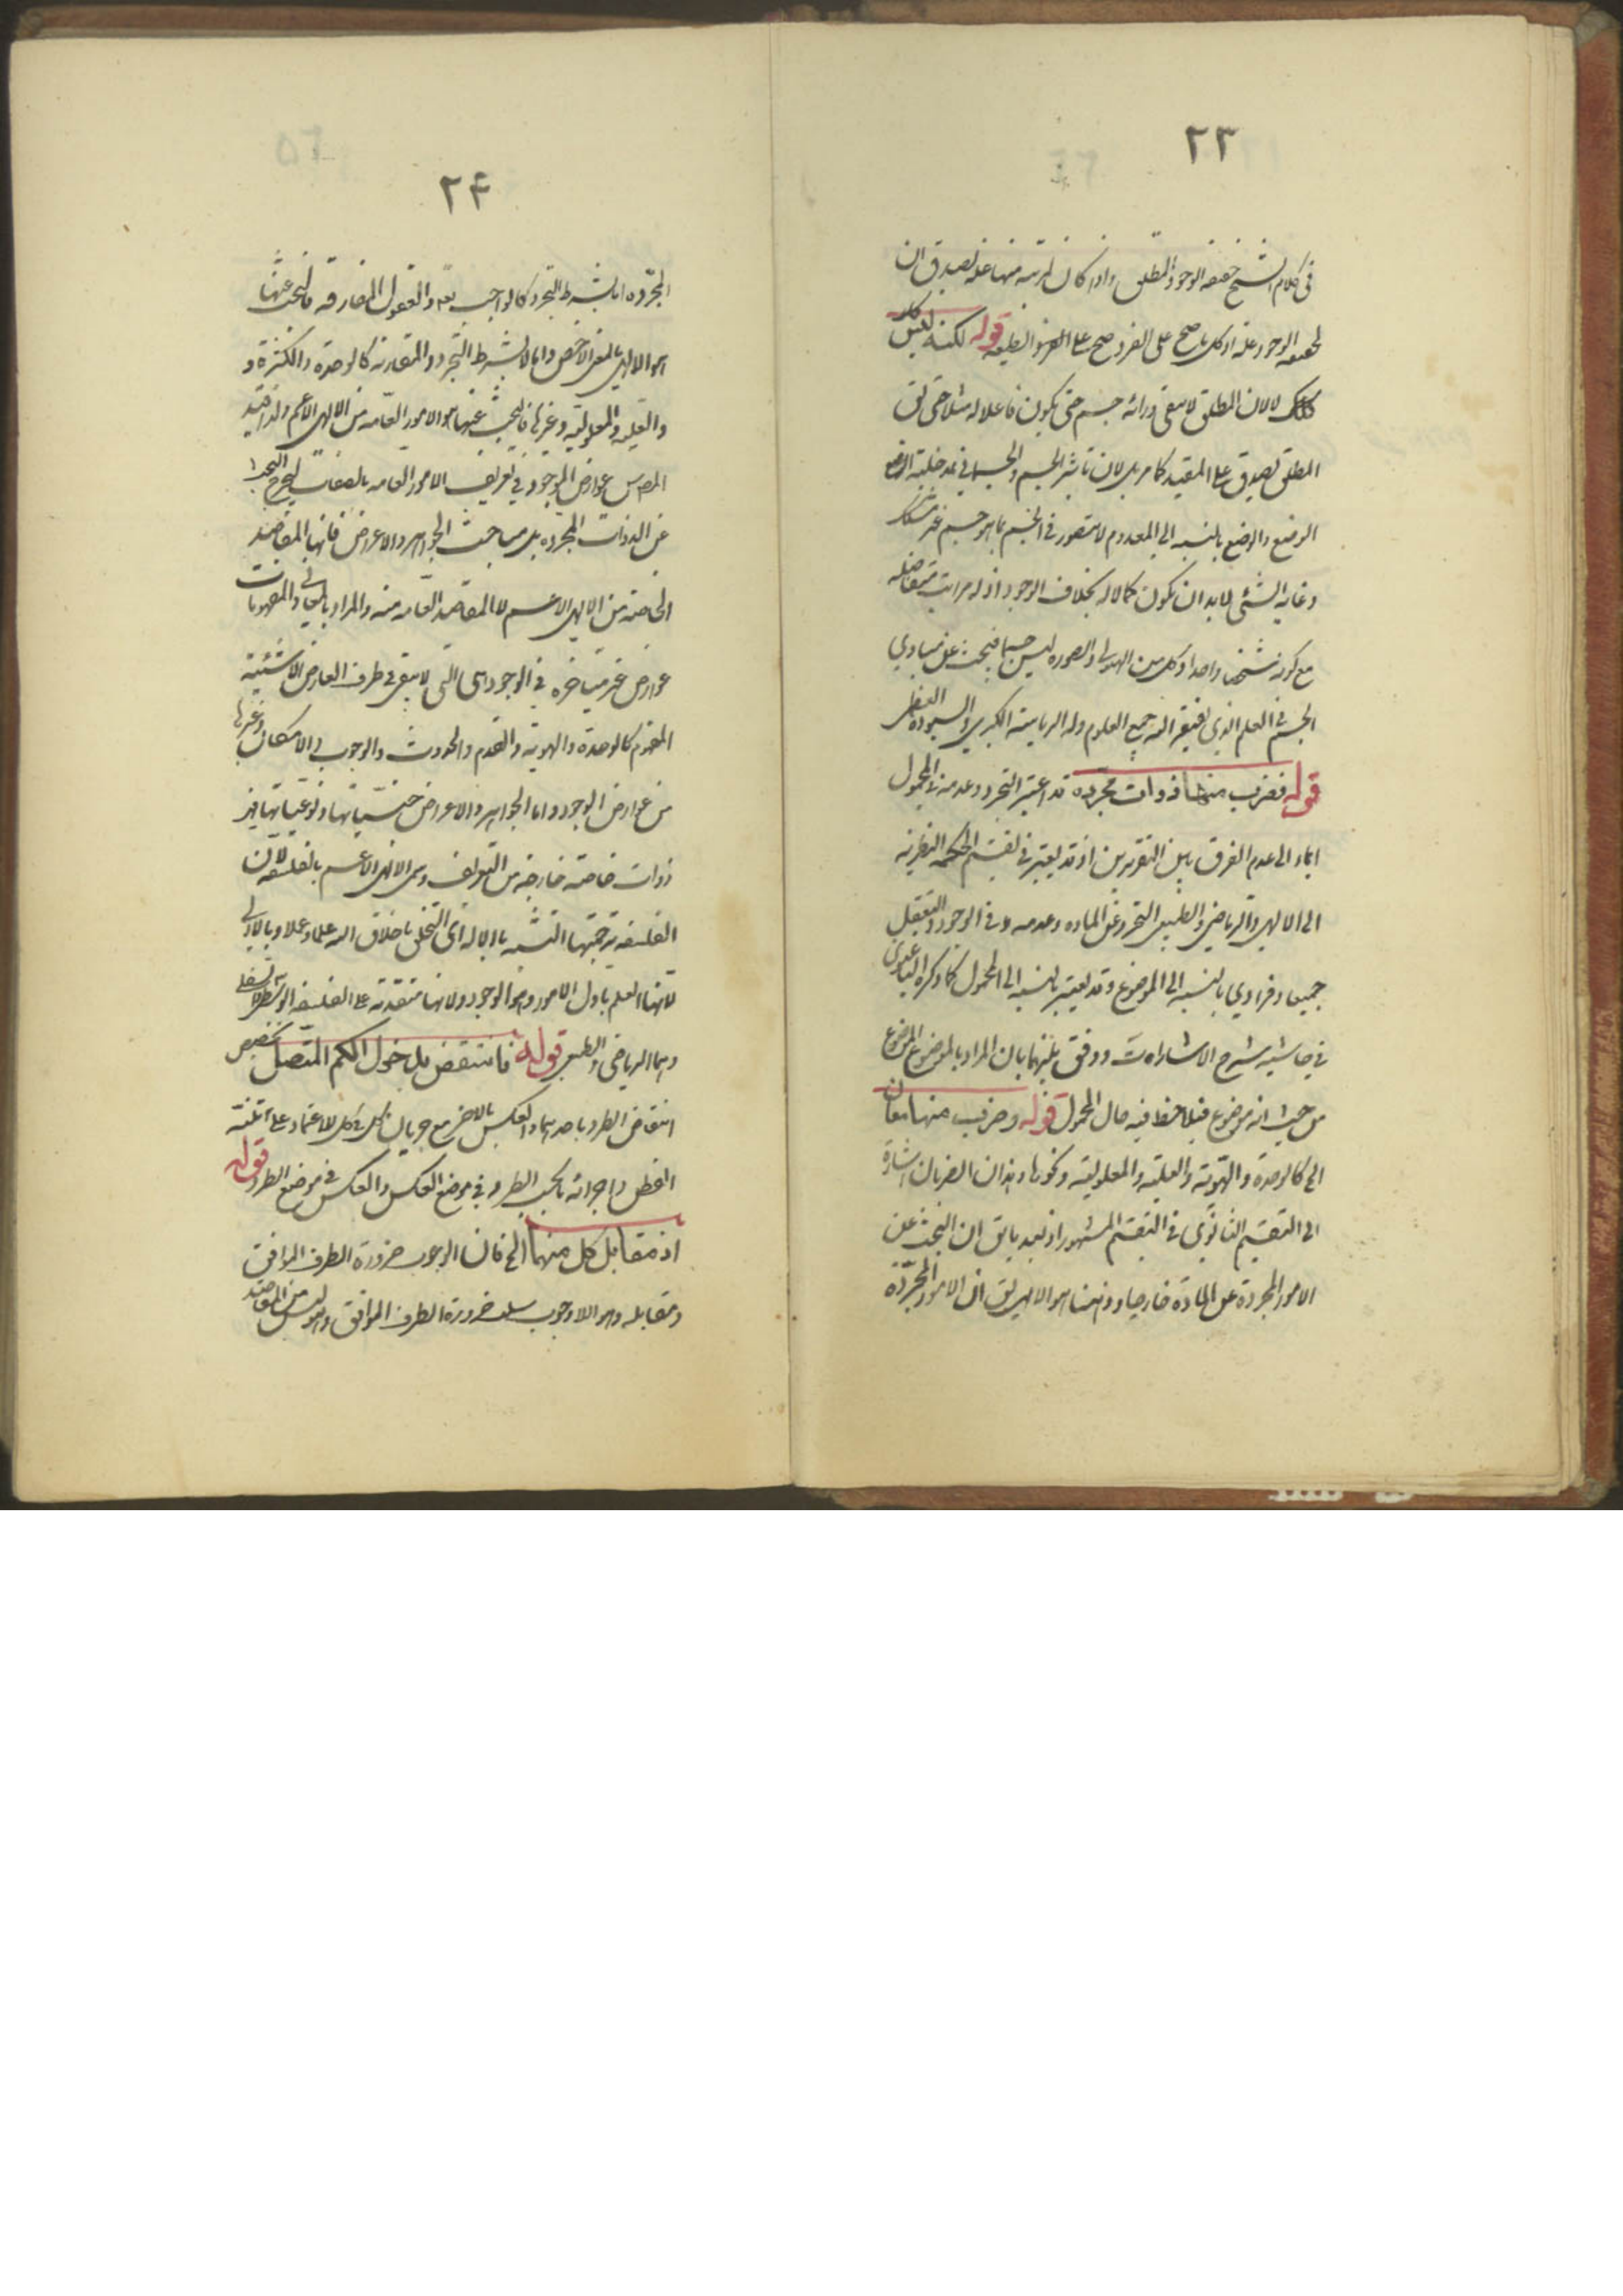 ٢٣
فی کلام الشیخ حقیقه الوجود المطلق واذا کان لمرتبه منها علة یصدق ان
لحقیقه الوجود علة اذ کل ما صح علی الفرد صح علی الطبیعه قوله لکنه لیس کل
کذلک لا لان المطلق لا یبقی ورائه جسم حتی یکون فاعلا له مثلا حتی یق
المطلق یصدق علی المقید کما مر بل لان تاثیر الجسم والجسمانی بمدخلیة الوضع
الوضع والوضع بالنسبه الی المعدوم لا یتصور فی الجسم بما هو جسم غیر مشکک
وغایه الشئی لابد ان یکون کمالا له بخلاف الوجود اذ له مراتب متفاضله
مع کونه شخصا واحدا وکل من الهیولی والصوره لیس جسما فیبحث عن مبادی
الجسم فی العلم الذی یفتقر الیه جمیع العلوم وله الریاسة الکبری والسیوده العظمی
قوله فضرب منها ذوات مجرده قد اعتبر التجرد وعدمه فی المحمول
ایماء الی عدم الفرق بین التقریرین اذ قد یعتبر فی تقسیم الحکمه النظریه
الی الالهی والریاضی والطبیعی التجرد عن الماده وعدمه فی الوجود والتعقل
جمیعا وفرادی بالنسبه الی الموضوع وقد یعتبر بالنسبه الی المحمول کما ذکره الباغنوی
فی حاشیه شرح الاشارات ووفق بینهما بان المراد بالموضوع الموضوع
من حیث انه موضوع فیلاحظ فیه حال المحمول قوله وضرب منها معان
الخ کالوحدة والهویة والعلیة والمعلولیة ونحوها وهذان الضربان اشارة
الی التقسیم الثانوی فی التقسیم المشهور اذ بعد ما یق ان البحث عن
الامور المجردة عن المادة خارجا وذهنا هو الالهی یق ان الامور المجردة
٢۴
المجرده اما بشرط التجرد کالواجب تعه والعقول المفارقه فالبحث عنها
هو الالهی بالمعنی الاخص واما لا بشرط التجرد والمقارنه کالوحدة والکثرة و
والعلیه والمعلولیه وغیرها فالبحث عنها هو الامور العامه من الالهی الاعم ولذا قید
المص عوارض الموجود فی تعریف الامور العامه بالصفات لیخرج البحث
عن الذوات المجرده بل مباحث الجواهر والاعراض فانها المقاصد
الخاصه من الالهی الاعم لا المقاصد العامه منه والمراد بالمعانی والمفهومات
عوارض غیر متاخره فی الوجود ای التی لا یبقی فی طرف العارض الا شیئیة
المفهوم کالوحدة والهویه والقدم والحدوث والوجوب والامکان وغیرها
من عوارض الوجود واما الجواهر والاعراض جنسیاتها ونوعیاتها فهی
ذوات خاصة خارجه من التعریف وسمی الالهی الاعم بالفلسفه لان
الفلسفه ترجمتها التشبه بالاله ای التخلق باخلاق الله علما وعملا وبالاولی
لانها العلم باول الامور وهو الوجود ولانها متقدمة علی الفلسفه الوسطی والسفلی
وهما الریاضی والطبیعی قوله فانتقض بدخول الکم المتصل تخصیص
انتقاض الطرد باحدهما والعکس بالاخر مع جریان کل فی کل للاعتماد علی تفطنه
الفطن واجرائه ما یجب الطرد فی موضع العکس والعکس فی موضع الطرد قوله
اذ مقابل کل منهما الخ فان الوجوب ضرورة الطرف الموافق
ومقابله وهو اللاوجوب سلب ضرورة الطرف الموافق وهو لیس من المقاصد